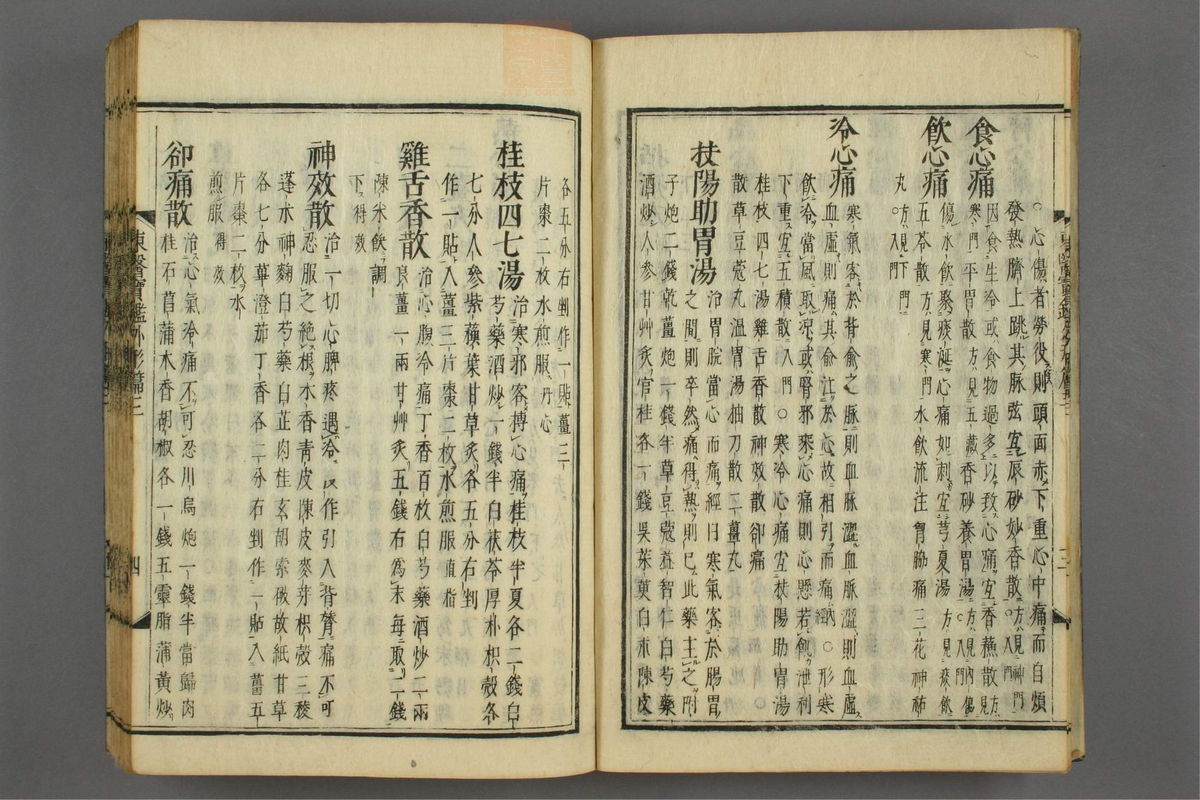 ○心傷者勞役則頭面赤下重心中痛而自煩
發熱臍上跳其脉弦宜辰砂妙香散方見神門
食心痛
因食生冷或食物過多以致心痛宜香蘇散方見
寒門平胃散方見五藏香砂養胃湯方見內傷○入門
飲心痛
傷水飲聚痰涎心痛如刺宜芎夏湯方見痰飲
五苓散方見寒門水飲流注胷脇痛三花神祐
丸方見下門入門
冷心痛
寒氣客於背俞之脉則血脉澀血脉澀則血虛
血虛則痛其俞注於心故相引而痛內○形寒
飲冷當風取涼或腎邪乘心痛則心懸若飢泄利
下重宜五積散入門○寒冷心痛宜扶陽助胃湯
桂枝四七湯雞舌香散神效散卻痛
散草豆蔻丸溫胃湯抽刀散二薑丸
扶陽助胃湯
治胃脘當心而痛經曰寒氣客於腸胃
之間則卒然痛得熱則已此藥主之附
子炮二錢乾薑炮一錢半草豆蔻益智仁白芍藥
酒炒人參甘艸炙官桂各一錢吳茱萸白朮陳皮
各五分右剉作一貼薑三
片棗二枚水煎服丹心
桂枝四七湯
治寒邪客搏心痛桂枝半夏各二錢白
芍藥酒炒一錢半白茯苓厚朴枳殼各
七分人參紫蘇葉甘草炙各五分右剉
作一貼入薑三片棗二枚水煎服直指
雞舌香散
治心腹冷痛丁香百枚白芍藥酒炒二兩
良薑一兩甘艸炙五錢右爲末每取一錢
陳米飲調
下得效
神效散
治一切心脾疼遇冷以作引入背膂痛不可
忍服之絕根木香青皮陳皮麥芽枳殼三稜
蓬朮神麴白芍藥白芷肉桂玄胡索破故紙甘草
各七分蓽澄茄丁香各二分右剉作一貼入薑五
片棗二枚水
煎服得效
卻痛散
治心氣冷痛不可忍川烏炮一錢半當歸肉
桂石菖蒲木香胡椒各一錢五靈脂蒲黃炒
東醫寶鑑外形篇三
四